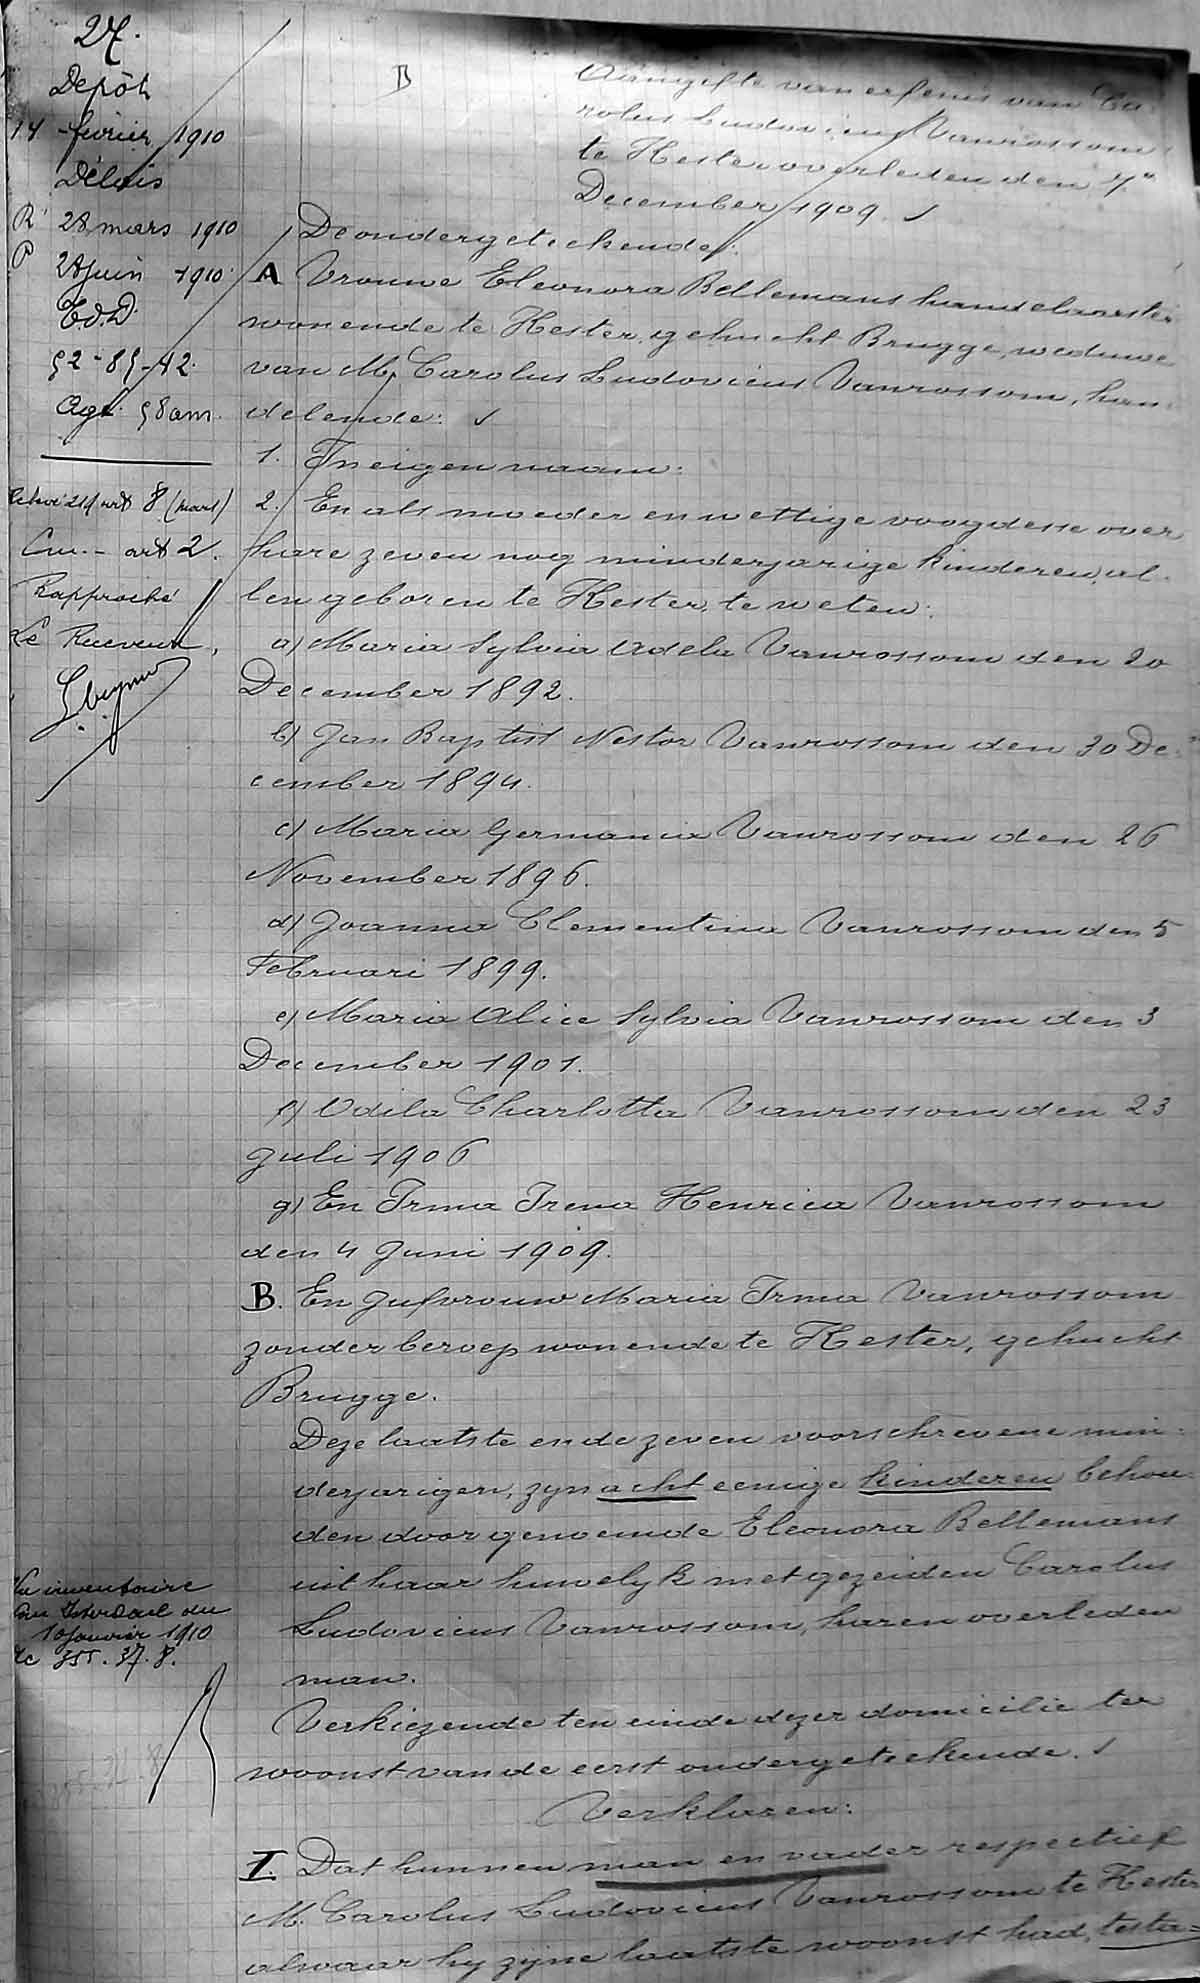 27.
Depôt
14 février 1910
Délais
R' 28 mars 1910
P 28 juin 1910
52-85-12.
Agt. 58 am.
art 8 (mars)
art 2.
Rapproché
Le Receveur,
Aangifte van erfenis van Ca-
rolus Ludovicus Vanrossom
te Hester overleden den 7n
December 1909.
De ondergeteekende:
A Vrouwe Eleonora Bellemans handelaarster
wonende te Hester, gehucht Brugge, weduwe
van M. Carolus Ludovicus Vanrossom, han-
delende:
1. In eigen naam:
2. En als moeder en wettige voogdesse over
hare zeven nog minderjarige kinderen, al-
len geboren te Hester, te weten:
a) Maria Sylvia Adela Vanrossom den 20
December 1892.
b) Jan Baptist Nestor Vanrossom den 30 De-
cember 1894.
c) Maria Germania Vanrossom den 26
November 1896.
d) Joanna Clementina Vanrossom den 5
Februari 1899.
e) Maria Alice Sylvia Vanrossom den 3
December 1901.
f) Odila Charlotta Vanrossom den 23
Juli 1906
g) En Irma Irena Henrica Vanrossom
den 4 Juni 1909.
B. En Jufvrouw Maria Irma Vanrossom
zonder beroep wonende te Hester, gehucht
Brugge.
Deze laatste en de zeven voorschrevene min-
derjarigen, zyn acht eenige kinderen behou-
den door genoemde Eleonora Bellemans
uit haar huwelyk met gezeiden Carolus
Ludovicus Vanrossom, haren overleden
man.
Vu inventaire
du
10 janvier 1910
355. 37. 8.
Verkiezende ten einde dezer domicilie ter
woonst van de eerst ondergeteekende.
Verklaren:
I. Dat hunnen man en vader respectief
M. Carolus Ludovicus Vanrossom te Hester
alwaar hy zyne laatste woonst had, testa-